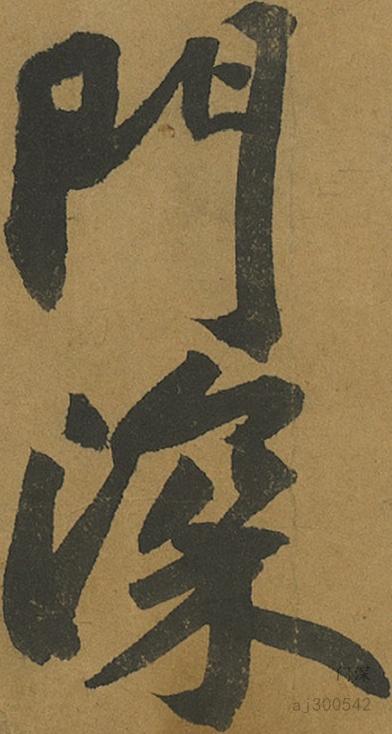 門深
门深
aj300542